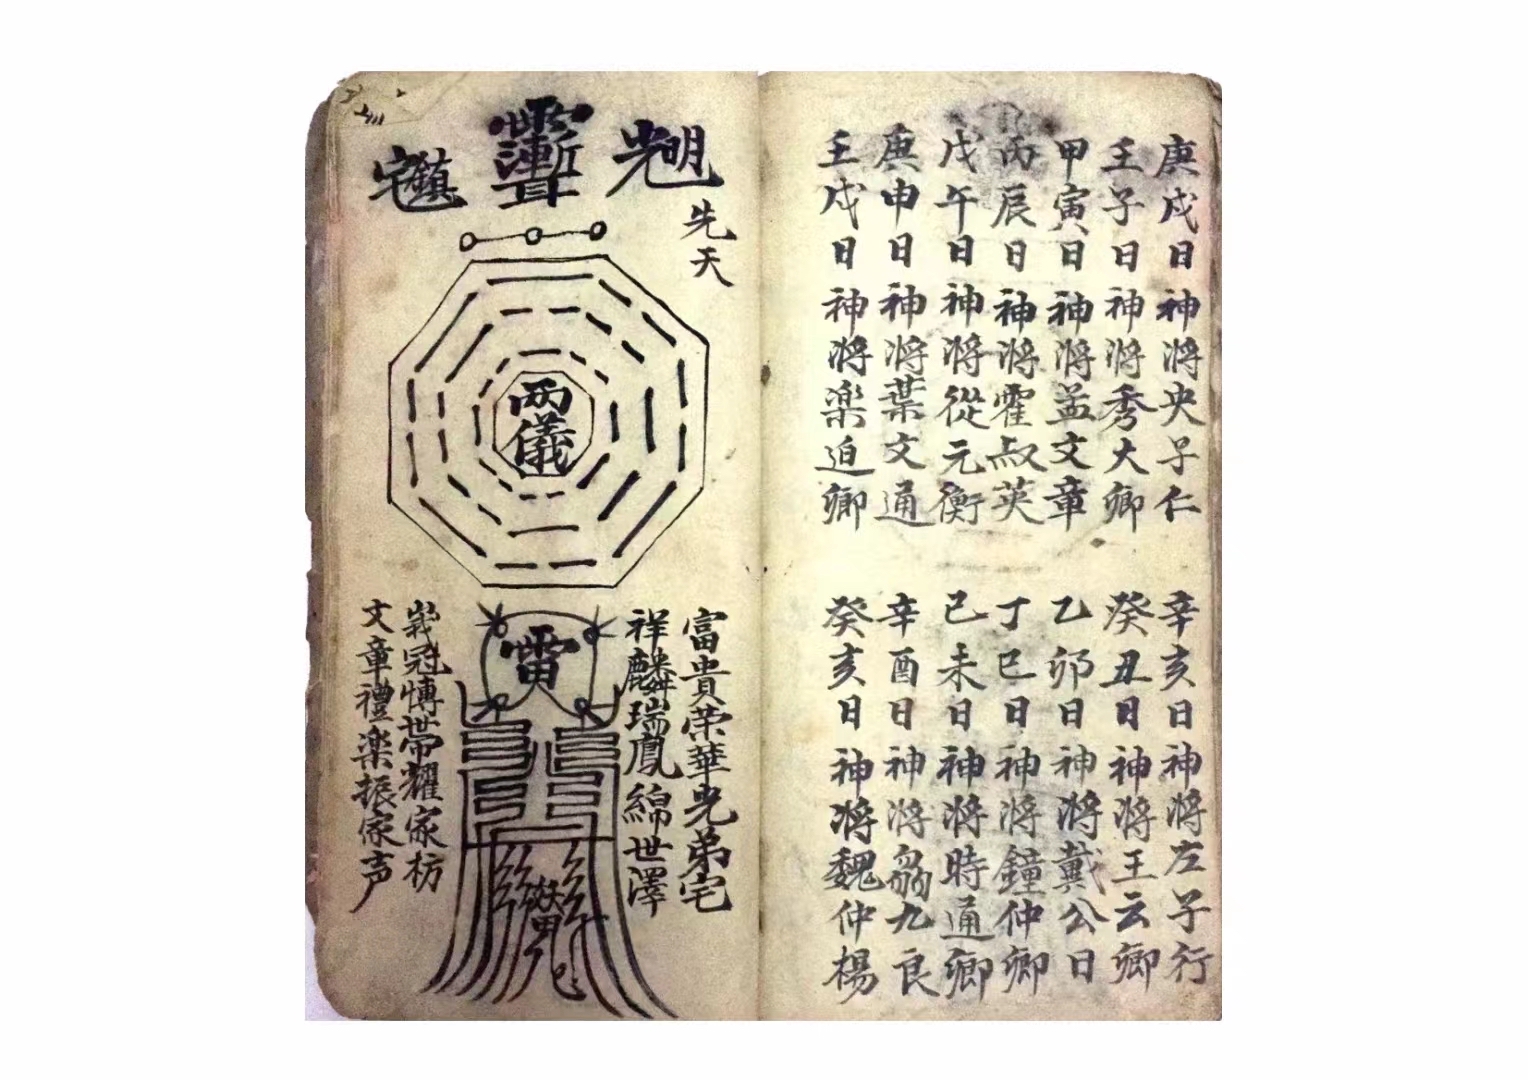 庚戌日神將央子仁
壬子日神將秀大卿
甲寅日神將孟文章
丙辰日神將霍叔英
戊午日神將從元衡
庚申日神將葉文通
壬戌日神將楽迫卿
辛亥日神將左子行
癸丑日神將王云卿
乙卯日神將戴公日
丁巳日神將鐘仲卿
己未日神將時通卿
辛酉日神將九良
癸亥日神將魏仲楊
先天
鎮宅
兩儀
富貴荣華光弟宅
祥麟瑞鳳綿世澤
雷
峩冠愽世帶耀家枋
文章禮楽振家声